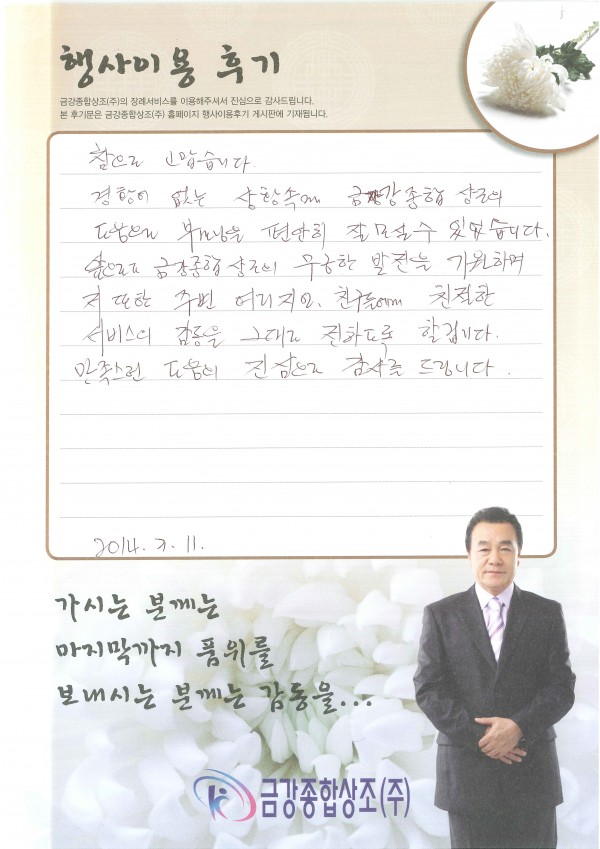 행사이용 후기
금강종합상조(주)의 장례서비스를 이용해주셔서 진심으로 감사드립니다.
본 후기문은 금강종합상조(주) 홈페이지 행사이용후기 게시판에 기재됩니다.
참으로 고맙습니다.
경황이 없는 상황속에 금강종합상조의
도움으로 부모님을 편안히 잘 모실수 있었습니다.
앞으로도 금강종합상조의 무궁한 발전을 기원하며
저 또한 주변 여러지인, 친구들에게 친절한
서비스의 감동을 그대로 전하도록 할겁니다.
만족스런 도움의 진심으로 감사를 드립니다.
2014. 7. 11.
가시는 분께는
마지막까지 품위를
보내시는 분께는 감동을...
금강종합상조(주)